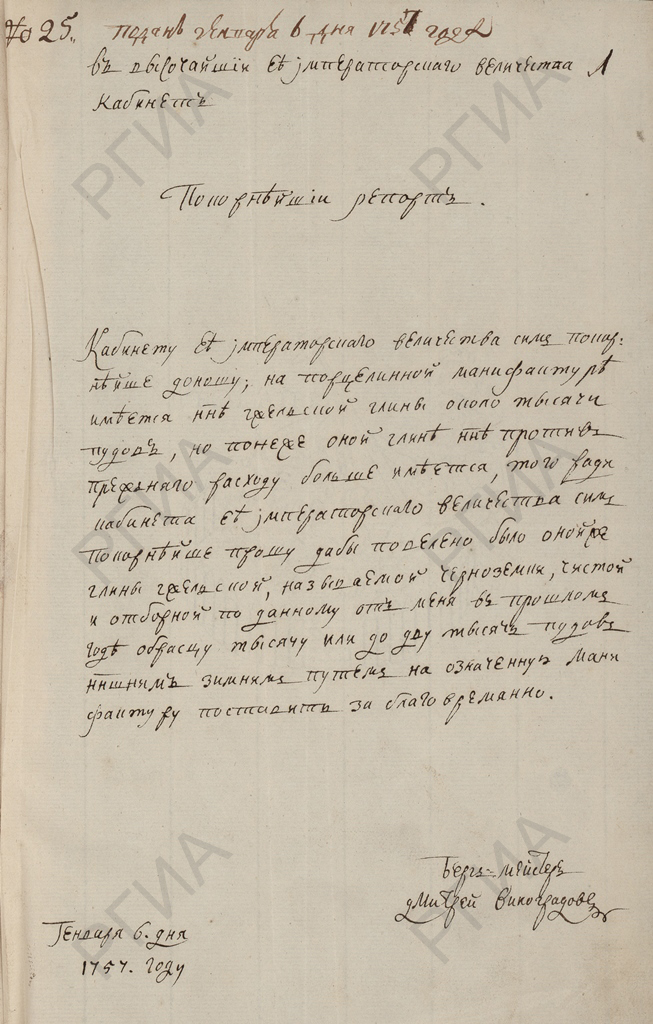 № 25. подан генваря 6 дня 1757 года
въ высочайшiи Еѣ jмператорскаго величества
Кабинетъ
Покорнѣйшiи репортъ.
Кабинету Еѣ jмператорскаго величества симъ покор:
нѣйше доношу; на порцелинной манифактурѣ
имѣется ннѣ гжельской глины около тысячи
пудовъ, но понеже оной глинѣ ннѣ противъ
прежняго расходу больше имѣется, того ради
кабинета Еѣ jмператорскаго величества симъ
покорнѣйше прошу дабы повелено было оной же
глины гжельской, называемой черноземки, чистой
и отборной по данному отъ меня въ прошломъ
годѣ образцу тысячу или до дву тысячъ пудовъ
ннѣшнимъ зимнимъ путемъ на означенную мани
фактуру поставить за благовременно.
Бергъ-мейстеръ
Дмитрей Виноградовъ
Генваря 6. дня
1757. году
РГИА
РГИА
РГИА
РГИА
РГИА
РГИА